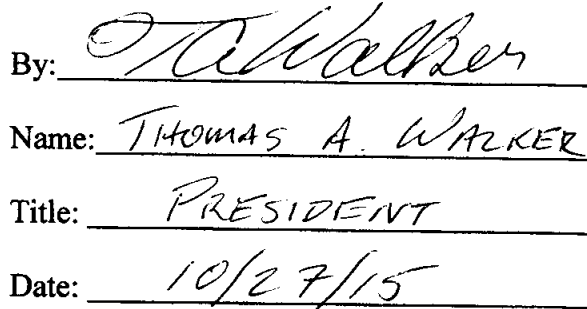 By: TA Walker
Name: THOMAS A. WALKER
Title: PRESIDENT
Date: 10/27/15